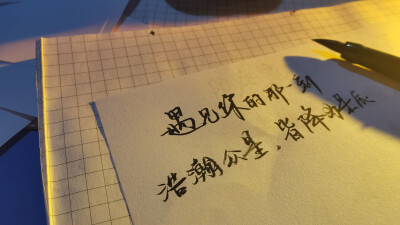 遇见你的那一刻
浩瀚众星，皆降为辰